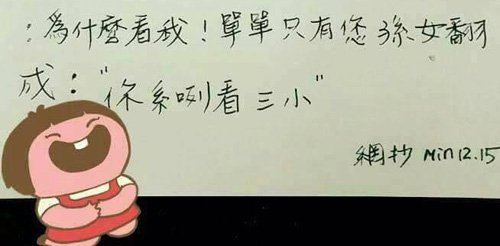 ：為什麼看我！單單只有您孫女翻
成："你系咧看三小"
網抄 Min 12.15